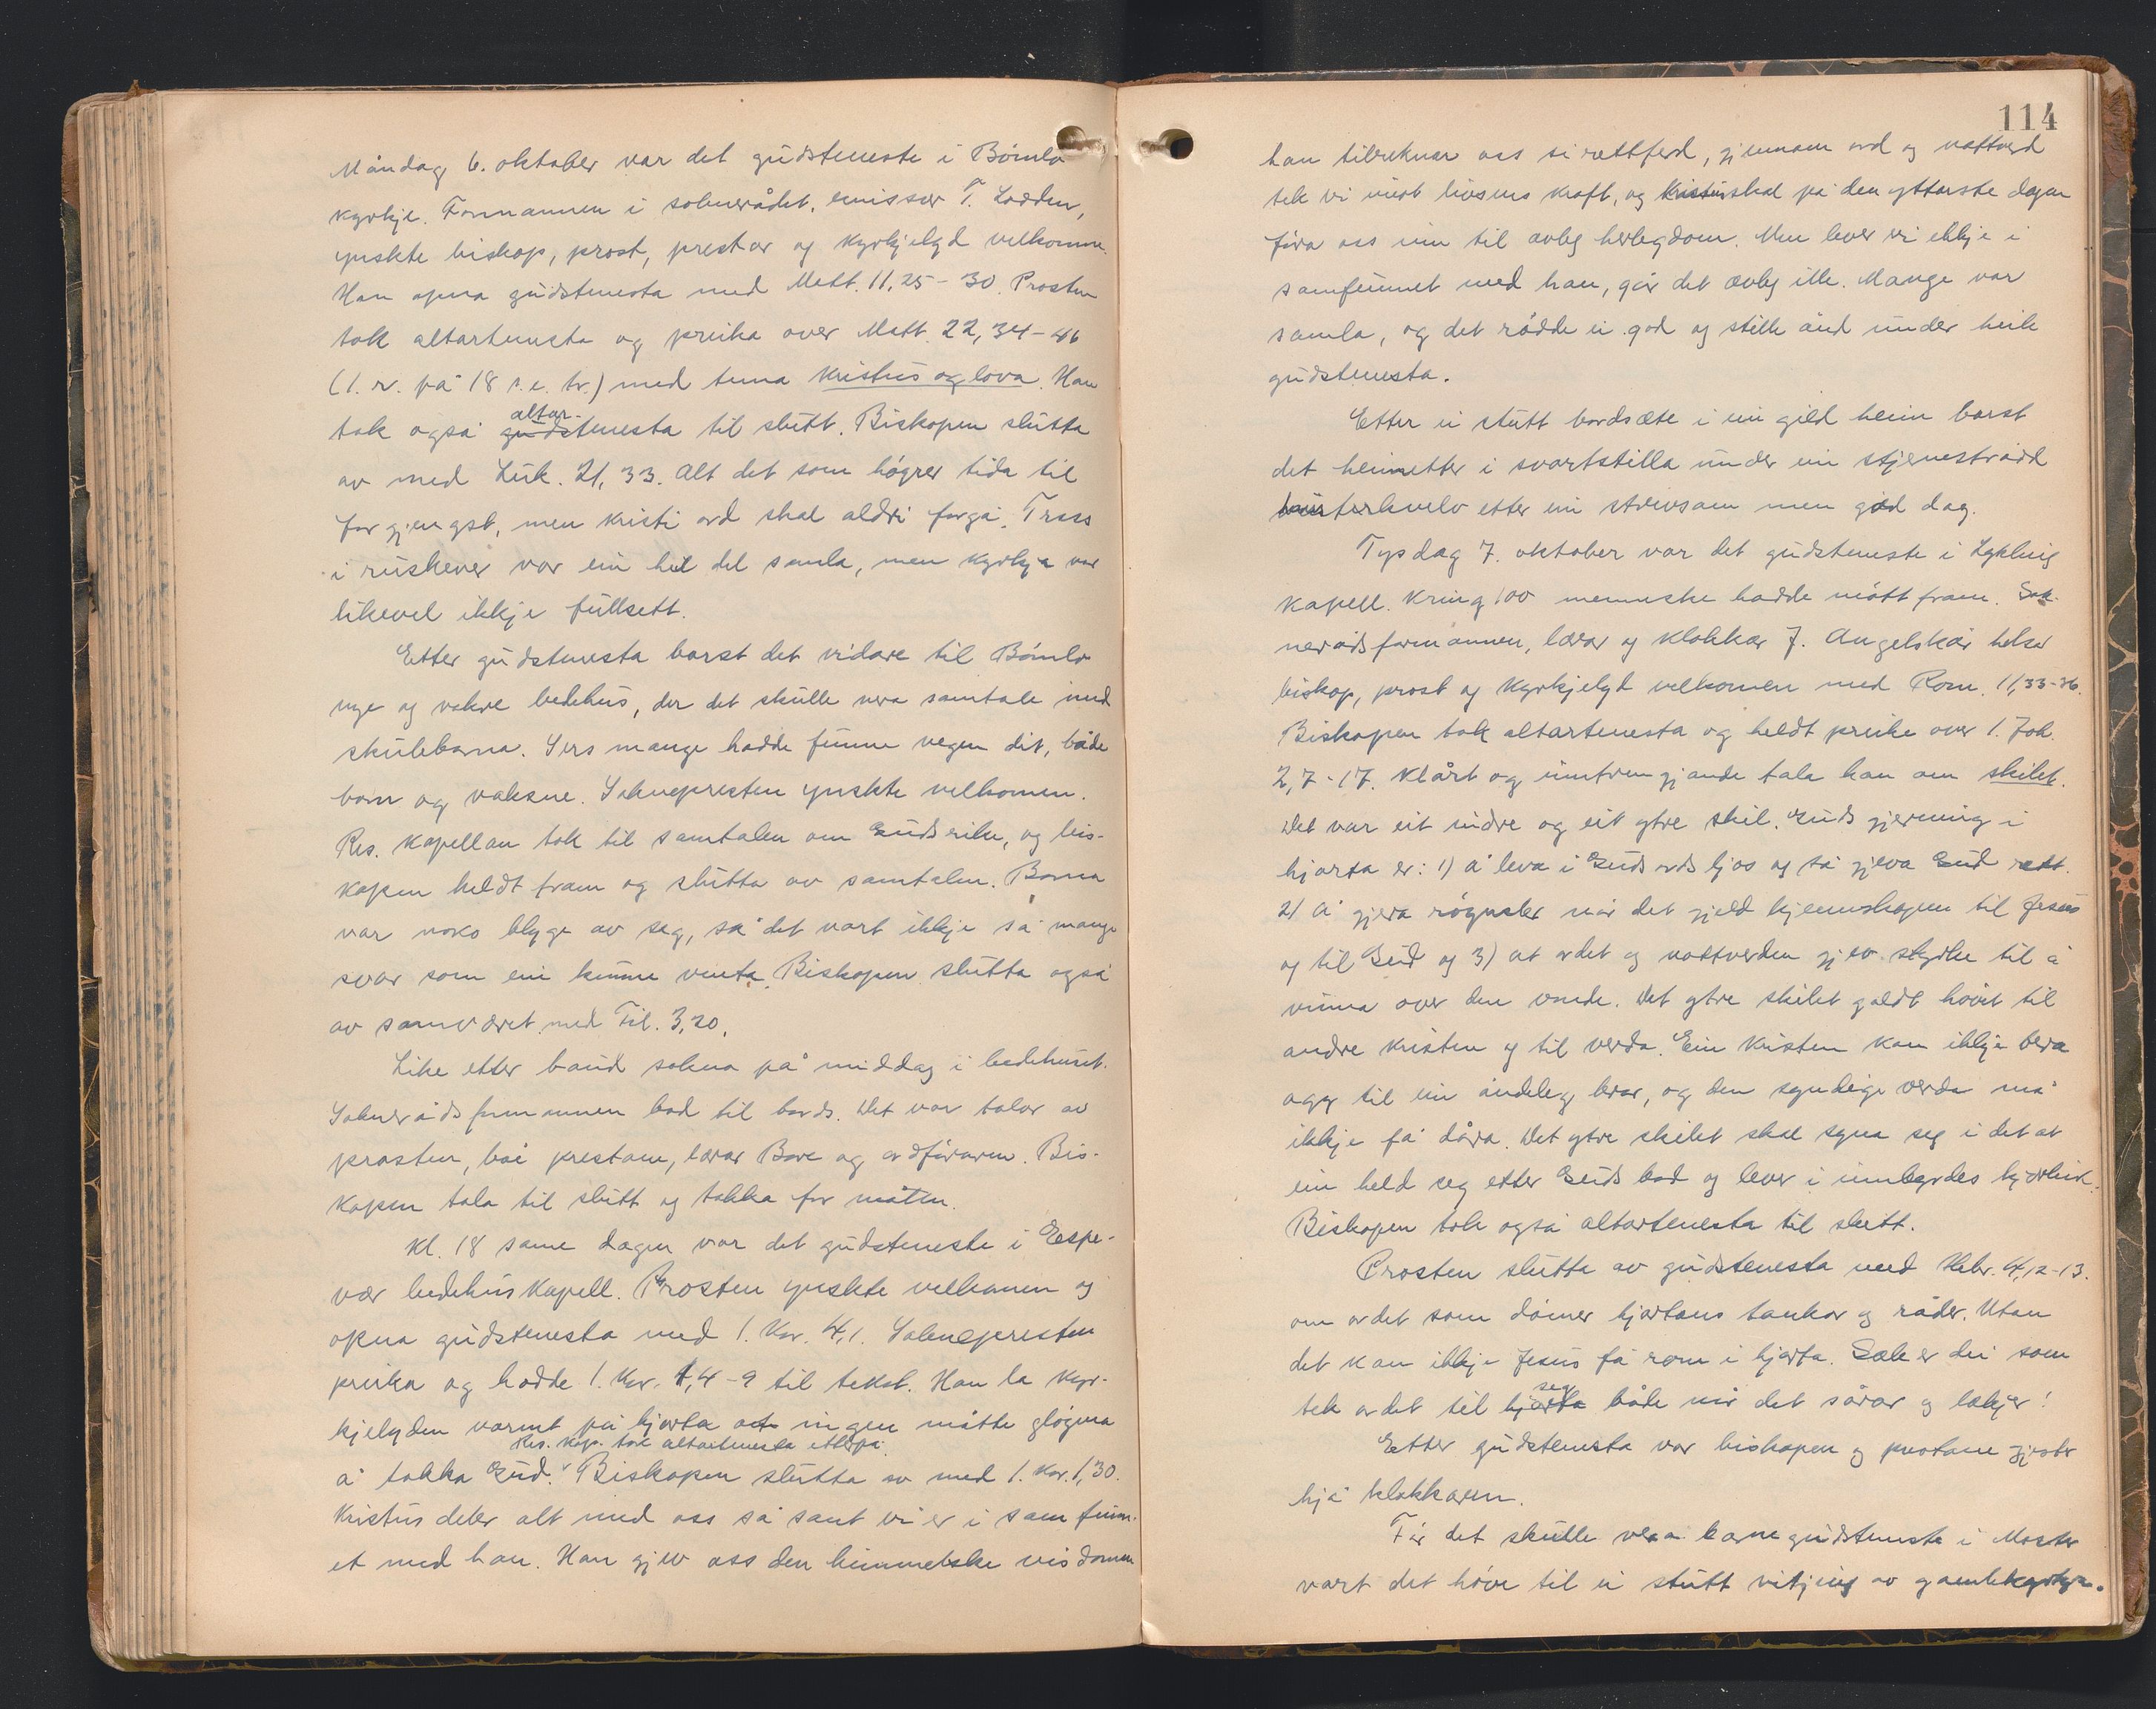 Måndag 6. oktober var det gudsteneste i Bømlo
kyrkje. Formannen i soknerådet, emissær T. Lodden,
ynskte biskop, prost, prestar og kyrkjelyd velkomne.
Han opna gudstenesta med Matt. 11,25-30. Prosten
tok altartenesta og preika over Matt. 22,34-46
(1. r. på 18 s.e. tr.) med tema Kristus og lova. Han
altar-
tok også gudstenesta til slutt. Biskopen slutta
av med Luk. 21,33. Alt det som høyrer tida til
forgjengst, men Kristi ord skal aldri forgå. Tross
i ruskever var ein heil del samla, men kyrkja var
likevel ikkje fullsett.
Etter gudstenesta barst det vidare til Bømlo
nye og vakre bedehus, der det skulle vera samtale med
skuleborna. Sers mange hadde funne vegen dit, både
born og vaksne. Soknepresten ynskte velkomen.
Res. kapellan tok til samtalen om Guds rike, og bis-
kopen heldt fram og slutta av samtalen. Borna
var noko blyge av seg, så det vart ikkje så mange
svar som ein kunne venta. Biskopen slutta også
av samværet med Fil. 3,20.
Like etter baud sokna på middag i bedehuset.
Soknerådsformannen bad til bords. Det var talar av
prosten, båe prestane, lærar Bore og ordføraren. Bis-
kopen tala til slutt og takka for maten.
Kl. 18 same dagen var det gudsteneste i Espe-
vær bedehuskapell. Prosten ynskte velkomen og
opna gudstenesta med 1. Kor. 4,1. Soknepresten
preika og hadde 1. Kor. 1,4-9 til tekst. Han la kyr-
kjelyden varmt på hjarta at ingen måtte gløyma
Res. kap. tok altartenesta etterpå.
å takka Gud. Biskopen slutta av med 1. Kor. 1,30.
Kristus deler alt med oss så sant vi er i samfunn-
et med han. Han gjev oss den himmelske visdomen
114
han tilreknar oss si rettferd, gjennom ord og nattverd
tek vi imot livsens kraft, og Kristus skal på den ytterste dagen
føra oss inn til ævleg herlegdom. Men lever vi ikkje i
samfunnet med han, går det ævleg ille. Mange var
samla, og det rådde ei god og stille ånd under heile
gudstenesta.
Etter ei stutt bordsete i ein gild heim barst
det heimetter i svartstilla under ein stjernestrådd
vinterkvelv etter ein strevsam men god dag.
Tysdag 7. oktober var det gudsteneste i Lykling
kapell. Kring 100 menneske hadde møtt fram. Sok-
nerådsformannen, lærar og klokkar J. Angelskår helsa
biskop, prost og kyrkjelyd velkomen med Rom. 11,33-36.
Biskopen tok altartenesta og heldt preike over 1. Joh.
2,7-17. Klårt og inntrengjande tala han om skilet.
Det var eit indre og eit ytre skil. Guds gjerning i
hjarta er: 1) å leva i Guds ords ljos og så gjeva Gud rett.
2) Å gjera røynsler når det gjeld kjennskapen til Jesus
og til Gud og 3) at ordet og nattverden gjev styrke til å
vinna over den vonde. Det ytre skilet galdt høvet til
andre kristen og til verda. Ein kristen kan ikkje bera
agg til ein åndeleg bror, og den syndige verda må
ikkje få dåra. Det ytre skilet skal syna seg i det at
ein held seg etter Guds bod og lever i innbyrdes kjærleik.
Biskopen tok også altartenesta til slutt.
Prosten slutta av gudstenesta med Hebr. 4,12-13.
om ordet som dømer hjartans tankar og råder. Utan
det kan ikkje Jesus få rom i hjarta. Sæle er dei som
seg
tek ordet til hjarta både når det sårar og lækjer!
Etter gudstenesta var biskopen og prestane gjester
hjå klokkaren.
Før det skulle vera barnegudsteneste i Moster
vart det høve til ei stutt vitjing av gamlekyrkja.